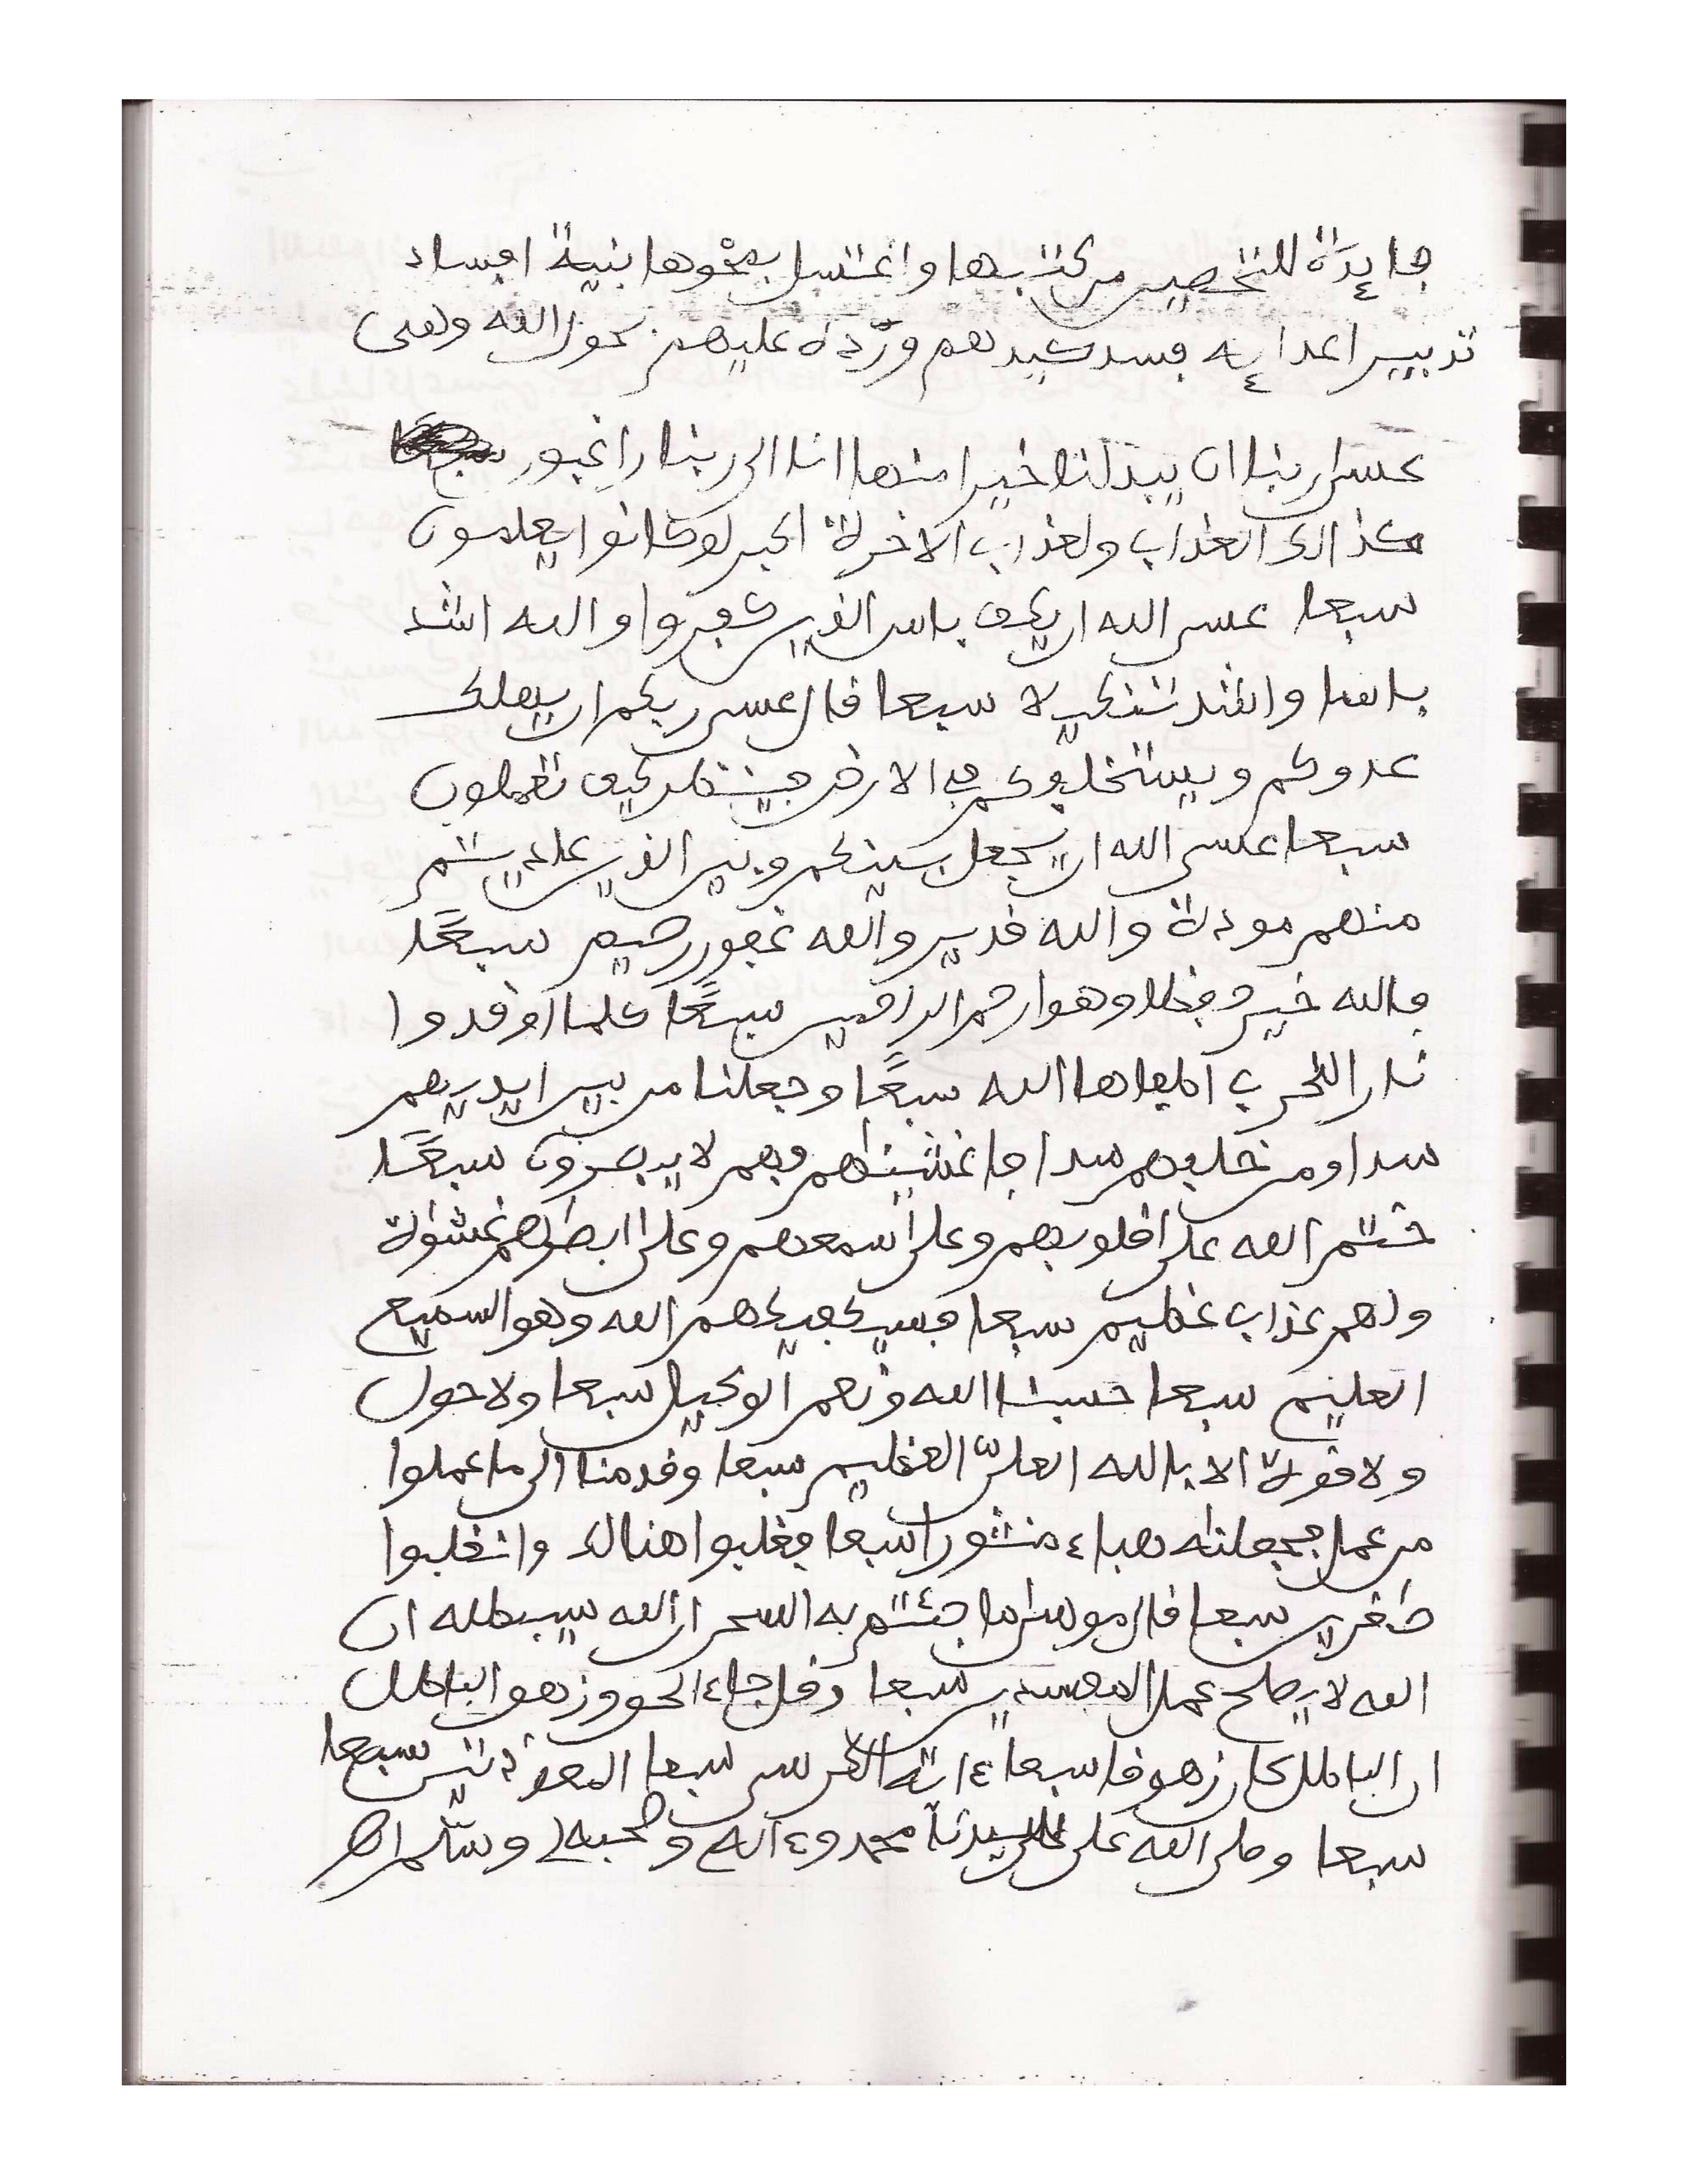 فايدة للتحصين من كتبها واغتسل بمحوها بنية افساد
تدبير اعدايه فسد كيدهم ورده عليهم بحول الله وهى
عسى ربنا ان يبدلنا خيرا منها انا الى ربنا راغبون
كذالك العذاب ولعذاب الاخرة اكبر لو كانوا يعلمون
سبعا عسى الله ان يكف باس الذين كفروا والله اشد
باسا واشد تنكيلا سبعا قال عسى ربكم ان يهلك
عدوكم ويستخلفكم في الارض فينظر كيف تعملون
سبعا عسى الله ان يجعل بينكم وبين الذين عاديتم
منهم مودة والله قدير والله غفور رحيم سبعًا
فالله خير حفظا وهو ارحم الراحمين سبعًا كلما اوقدوا
نارا للحرب اطفاها الله سبعًا وجعلنا من بين ايديهم
سدا ومن خلفهم سدا فاغشيناهم فهم لا يبصرون سبعًا
ختم الله على قلوبهم وعلى سمعهم وعلى ابصارهم غشوة
ولهم عذاب عظيم سبعا فسيكفيكهم الله وهو السميع
العليم سبعا حسبنا الله ونعم الوكيل سبعا ولا حول
ولا قوة الا بالله العليّ العظيم سبعا وقدمنا الى ما عملوا
من عمل فجعلنه هباء منثورا سبعا فغلبوا هنالك وانقلبوا
صغرين سبعا قال موسى ما جئتم به السحر ان الله سيبطله ان
الله لا يصلح عمل المفسدين سبعا وقل جاء الحق وزهق الباطل
ان الباطل كان زهوقا سبعا ءاية الكرسى سبعا المعوذتين سبعا
سبعا وصلى الله على سيدنا محمد وءاله وصحبه وسلم اهـ